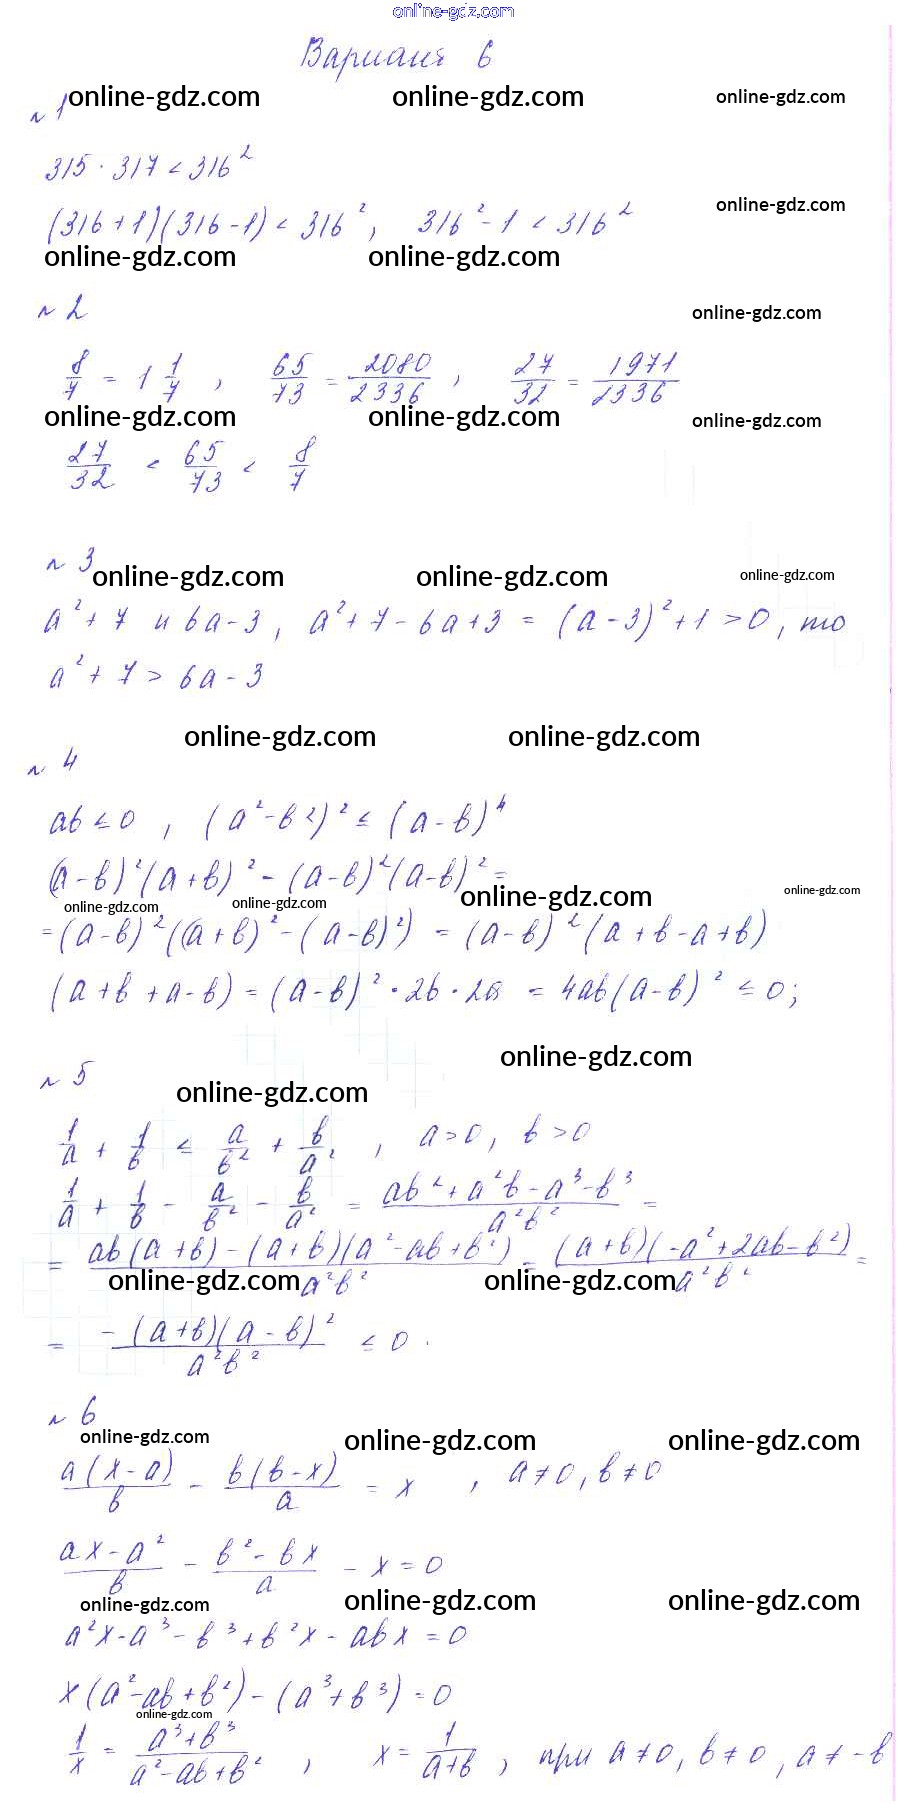 online-gdz.com
Вариант 6
online-gdz.com online-gdz.com online-gdz.com
№ 1
315 · 317 < 316²
online-gdz.com
(316 + 1)(316 - 1) < 316², 316² - 1 < 316²
online-gdz.com online-gdz.com
№ 2 online-gdz.com
8/7 = 1 1/7, 65/73 = 2080/2336, 27/32 = 1971/2336
online-gdz.com online-gdz.com online-gdz.com
27/32 < 65/73 < 8/7
№ 3
online-gdz.com online-gdz.com online-gdz.com
a² + 7 и 6a - 3, a² + 7 - 6a + 3 = (a - 3)² + 1 > 0, то
a² + 7 > 6a - 3
online-gdz.com online-gdz.com
№ 4
ab ≤ 0, (a² - b²)² ≤ (a - b)⁴
(a - b)²(a + b)² - (a - b)²(a - b)² =
online-gdz.com online-gdz.com online-gdz.com online-gdz.com
= (a - b)²((a + b)² - (a - b)²) = (a - b)²(a + b - a + b)
(a + b + a - b) = (a - b)² · 2b · 2a = 4ab(a - b)² ≤ 0;
online-gdz.com
№ 5
online-gdz.com
1/a + 1/b ≤ a/b² + b/a², a > 0, b > 0
1/a + 1/b - a/b² - b/a² = (ab² + a²b - a³ - b³)/(a²b²) =
= (ab(a + b) - (a + b)(a² - ab + b²))/(a²b²) = ((a + b)(-a² + 2ab - b²))/(a²b²) =
online-gdz.com online-gdz.com
= (-(a + b)(a - b)²)/(a²b²) ≤ 0.
№ 6
online-gdz.com online-gdz.com online-gdz.com
a(x - a)/b - b(b - x)/a = x, a ≠ 0, b ≠ 0
(ax - a²)/b - (b² - bx)/a - x = 0
online-gdz.com online-gdz.com online-gdz.com
a²x - a³ - b³ + b²x - abx = 0
x(a² - ab + b²) - (a³ + b³) = 0
online-gdz.com
1/x = (a³ + b³)/(a² - ab + b²), x = 1/(a + b), при a ≠ 0, b ≠ 0, a ≠ -b